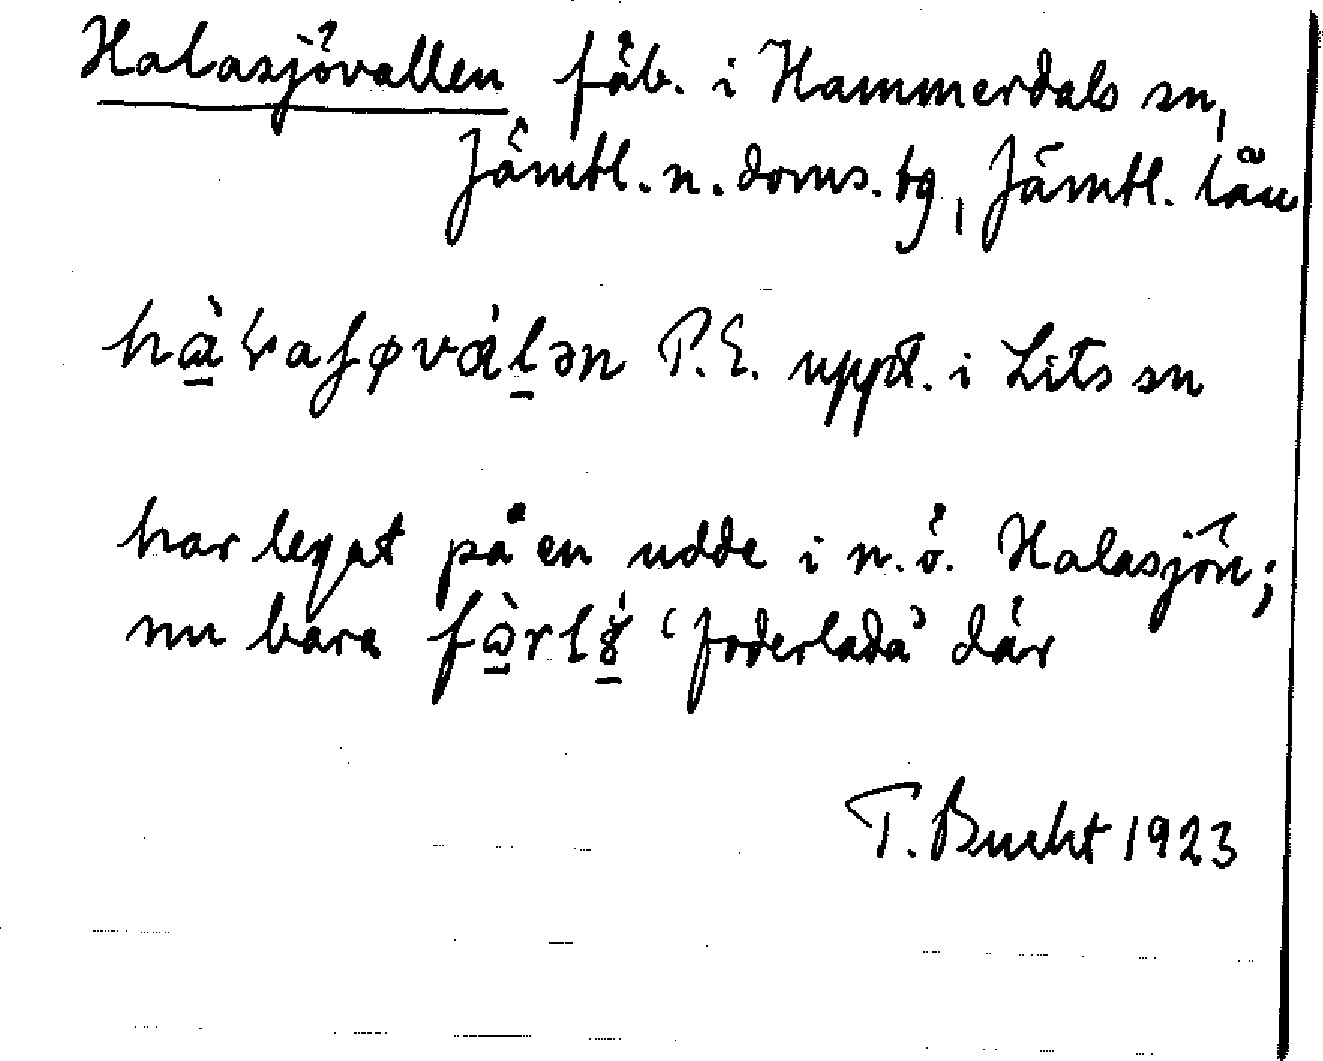 Halasjövallen fäb. i Hammerdals sn,
Jämtl. n. doms. tg, Jämtl. län
P.E. uppt. i Lits sn
har legat på en udde i n.ö. Halasjön;
nu bara 'foderlada' där
T. Bucht 1923